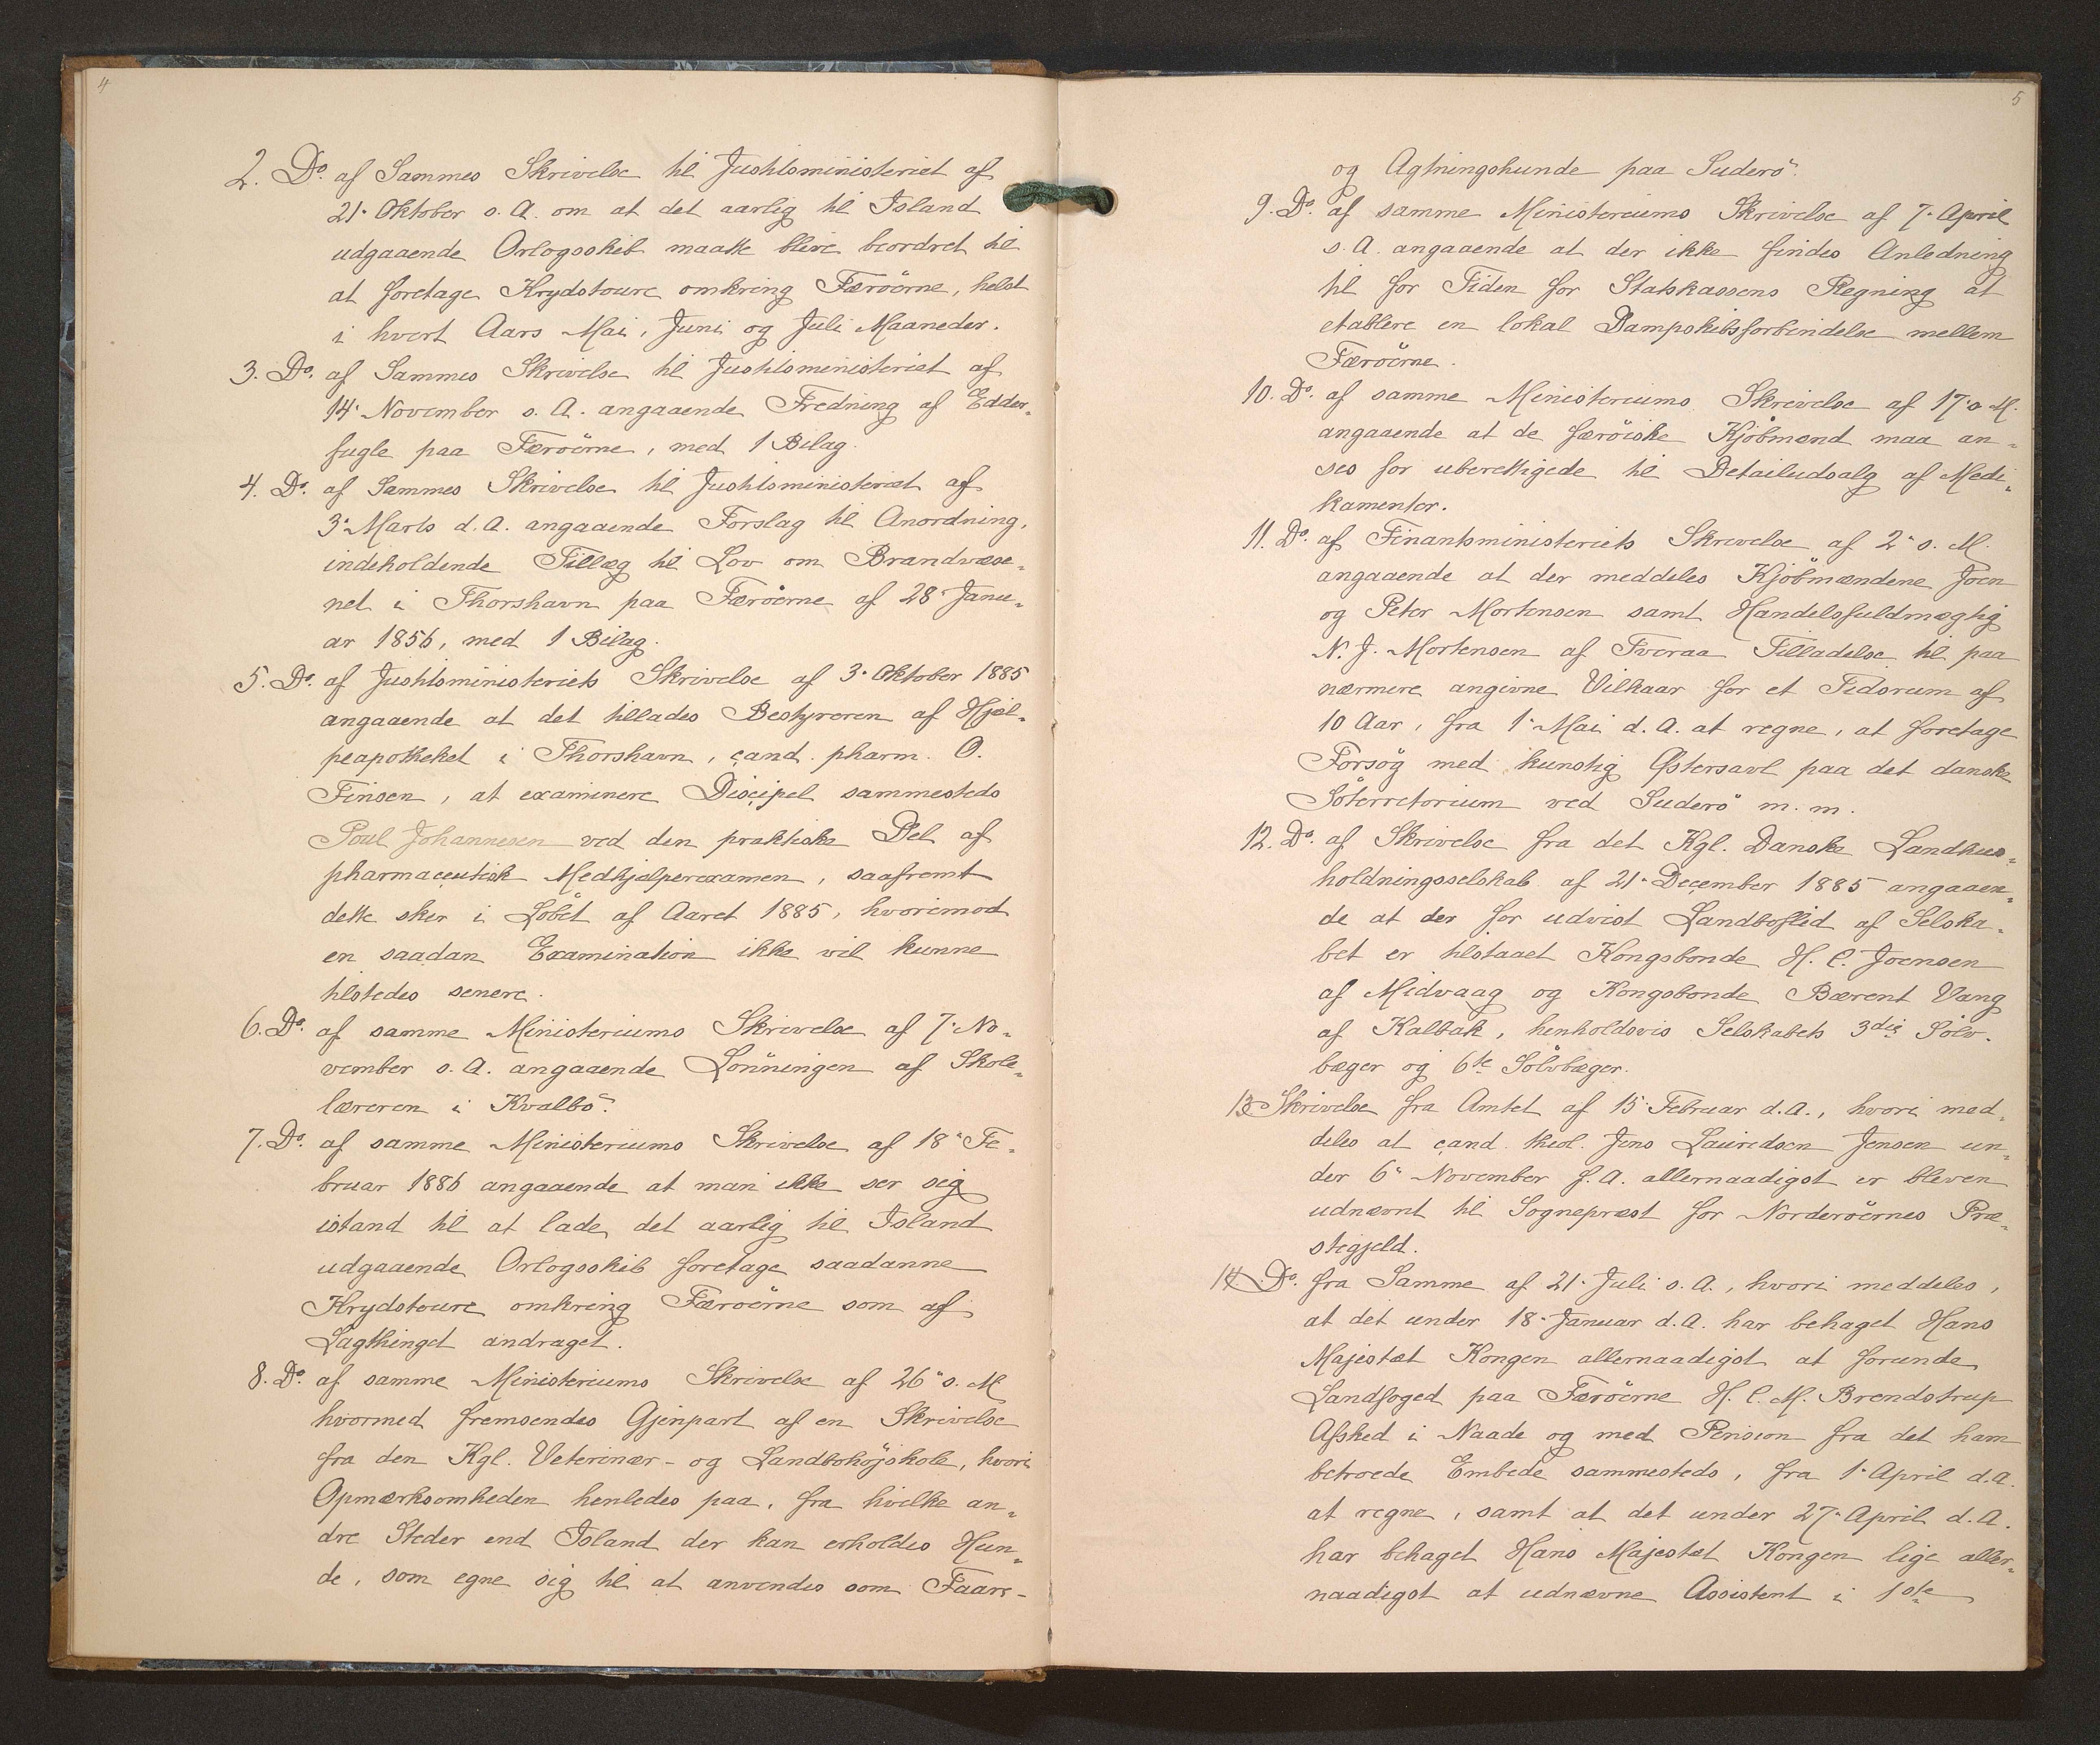 4
2. Do. af Sammes Skrivelse til Justitsministeriet af
21. Oktober s. A. om at det aarlig til Island
udgaaende Orlogsskib maatte blive beordret til
at foretage Krydstoure omkring Færöerne, helst
i hvert Aars Mai, Juni og Juli Maaneder.
3. Do. af Sammes Skrivelse til Justitsministeriet af
14. November s. A. angaaende Fredning af Edder-
fugle paa Færöerne, med 1 Bilag.
4. Do. af Sammes Skrivelse til Justitsministeriet af
3. Marts d. A. angaaende Forslag til Anordning,
indeholdende Tillæg til Lov om Brandvæse-
net i Thorshavn paa Færöerne af 28. Janu-
ar 1856, med 1 Bilag.
5. Do. af Justitsministeriets Skrivelse af 3. Oktober 1885
angaaende at det tillades Bestyreren af Hjæl-
peapotheket i Thorshavn, cand. pharm. O.
Finsen, at examinere Discipel sammesteds
Poul Johannesen ved den praktiske Del af
pharmaceutisk Medhjælperexamen, saafremt
dette sker i Löbet af Aaret 1885, hvorimod
en saadan Examination ikke vil kunne
tilstedes senere.
6. Do. af samme Ministeriums Skrivelse af 7. No-
vember s. A. angaaende Lönningen af Skole-
læreren i Kvalbö.
7. Do. af samme Ministeriums Skrivelse af 18. Fe-
bruar 1886 angaaende at man ikke ser sig
istand til at lade det aarlig til Island
udgaaende Orlogsskib foretage saadanne
Krydstoure omkring Færöerne som af
Lagthinget andraget.
8. Do. af samme Ministeriums Skrivelse af 26. s. M.
hvormed fremsendes Gjenpart af en Skrivelse
fra den Kgl. Veterinær- og Landbohöjskole, hvori
Opmærksomheden henledes paa, fra hvilke an-
dre Steder end Island der kan erholdes Hun-
de, som egne sig til at anvendes som Faare-
5
og Agtningshunde paa Suderö.
9. Do. af samme Ministeriums Skrivelse af 7. April
s. A. angaaende at der ikke findes Anledning
til for Tiden for Statskassens Regning at
etablere en lokal Dampskibsforbindelse mellem
Færöerne.
10. Do. af samme Ministeriums Skrivelse af 17. s. M.
angaaende at de færöiske Kjöbmænd maa an-
ses for uberettigede til Detailudsalg af Medi-
kamenter.
11. Do. af Finantsministeriets Skrivelse af 2. s. M.
angaaende at der meddeles Kjöbmændene Joen
og Peter Mortensen samt Handelsfuldmægtig
N. J. Mortensen af Tveraa Tilladelse til paa
nærmere angivne Vilkaar for et Tidsrum af
10 Aar, fra 1. Mai d. A. at regne, at foretage
Forsög med kunstig Östersavl paa det danske
Söterretorium ved Suderö m. m.
12. Do. af Skrivelse fra det Kgl. Danske Landhus-
holdningsselskab af 21. December 1885 angaaen-
de at der for udvist Landboflid af Selska-
bet er tilstaaet Kongsbonde H. C. Joensen
af Midvaag og Kongsbonde Bærent Vang
af Kalbak, henholdsvis Selskabets 3die Sölv-
bæger og 6te Sölvbæger.
13. Skrivelse fra Amtet af 15. Februar d. A., hvori med-
deles at cand. theol. Jens Lauridsen Jensen un-
der 6. November f. A. allernaadigst er bleven
udnævnt til Sognepræst for Norderöernes Præ-
stegjeld.
14. Do. fra Samme af 21. Juli s. A., hvori meddeles,
at det under 18. Januar d. A. har behaget Hans
Majestæt Kongen allernaadigst at forunde
Landfoged paa Færöerne H. C. M. Brendstrup
Afsked i Naade og med Pension fra det ham
betroede Embede sammesteds, fra 1. April d. A.
at regne, samt at det under 27. April d. A.
har behaget Hans Majestæt Kongen lige aller-
naadigst at udnævne Assistent i 1ste